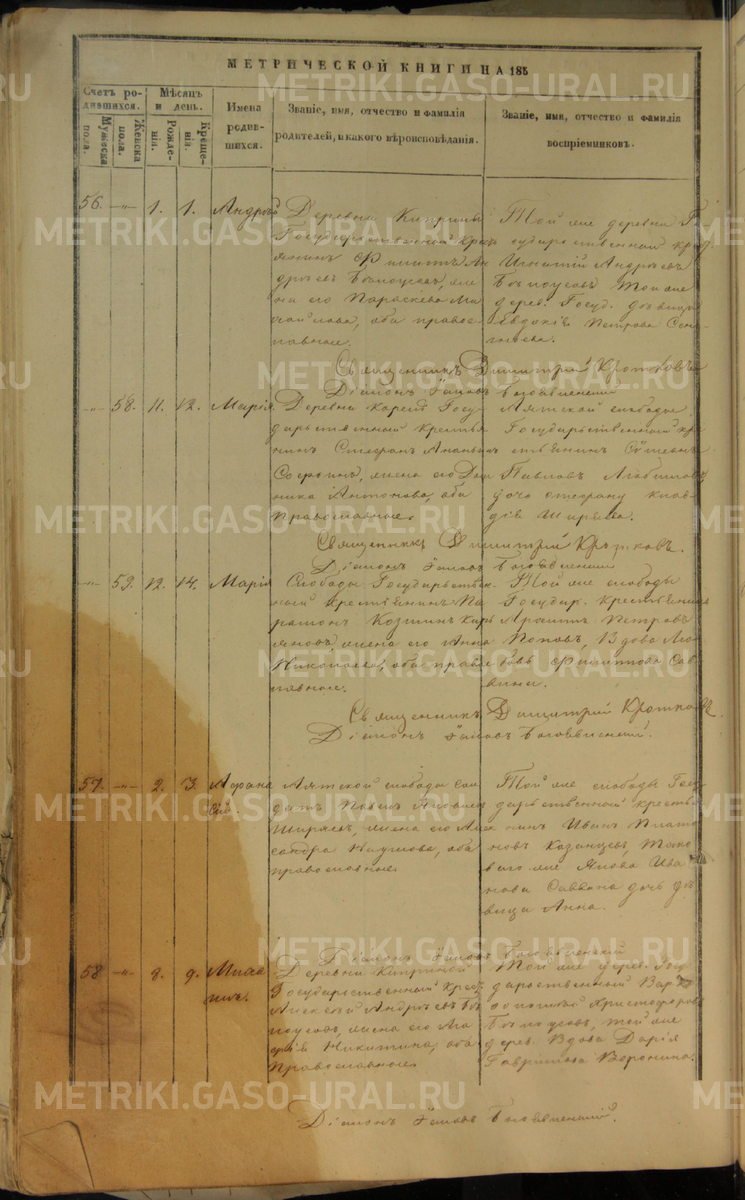 МЕТРИЧЕСКОЙ КНИГИ НА 185
Счетъ родившихся.
Мужеска пола.
Женска пола.
Мѣсяцъ и день.
Рожденія.
Крещенія.
Имена родившихся.
Званіе, имя, отчество и фамилія
родителей, и какого вѣроисповѣданія.
Званіе, имя, отчество и фамилія
воспріемниковъ.
56. —"— 1. 1. Андрѣй
Деревни Киприны
Государственный крес
янинъ Филиппъ Ан
дрѣевъ Бѣлоусовъ, же
на его Параскева Ми
хайлова, оба правос
лавное.
Той же деревни Го
сударственный крес
Игнатій Андрѣевъ
Бѣлоусовъ Той же
дерев. Госуд. дѣвица
Евдокія Петрова
Священникъ Димитрій Кротковъ
Діаконъ Іаковъ Богоявленскій
—"— 58. 11. 12. Марія
Деревни Корелъ Госу
дарственный Крестья
нинъ Стефанъ Ананьинъ
жена его Дом
ника Антонова, оба
Православное.
Аятской слободы
Государственный кре
стьянинъ
Павловъ
дочь
Ширяева.
Священникъ Димитрій Кротковъ.
Діаконъ Іаковъ Богоявленскій
—"— 59. 12. 14. Марія
Слободы Государствен
ный Крестьянинъ Па
рамонъ Козминъ
жена его Анна
Николаева, оба правос
лавное.
Той же слободы
Государ. крестьянинъ
Петровъ
Поповъ, Вдова Лю
бовь Филиппова
Священникъ Димитрій Кротковъ
Діаконъ Іаковъ Богоявленскій.
57. —"— 2. 3. Афана
сій
Аятской слободы Сол
датъ Павелъ Яковлевъ
Ширяевъ, жена его Алек
сандра Наумова, оба
православное.
Той же слободы Госу
дарственный кресть
нинъ Иванъ Плато
новъ Казанцевъ,
Якова Ива
нова дочь дѣ
вица Анна.
Діаконъ Іаковъ Богоявленскій
58 —"— 8. 9.
Деревни Киприной
Государственный крес
Алексѣй Андрѣевъ Бѣ
лоусовъ, жена его Ма
рія Никитина, оба
Православное
Той же дерев. Госу
дарственный
Христофоровъ
Бѣлоусовъ, той же
дерев. Вдова Дарія
Гаврилова Воронина.
Діаконъ Іаковъ Богоявленскій.
METRIKI.GASO-URAL.RU